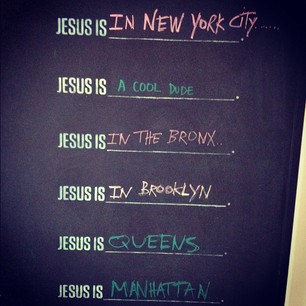 JESUS IS IN NEW YORK CITY......
JESUS IS A COOL DUDE.
JESUS IS IN THE BRONX...
JESUS IS IN BROOKLYN.
JESUS IS QUEENS.
JESUS IS MANHATTAN.